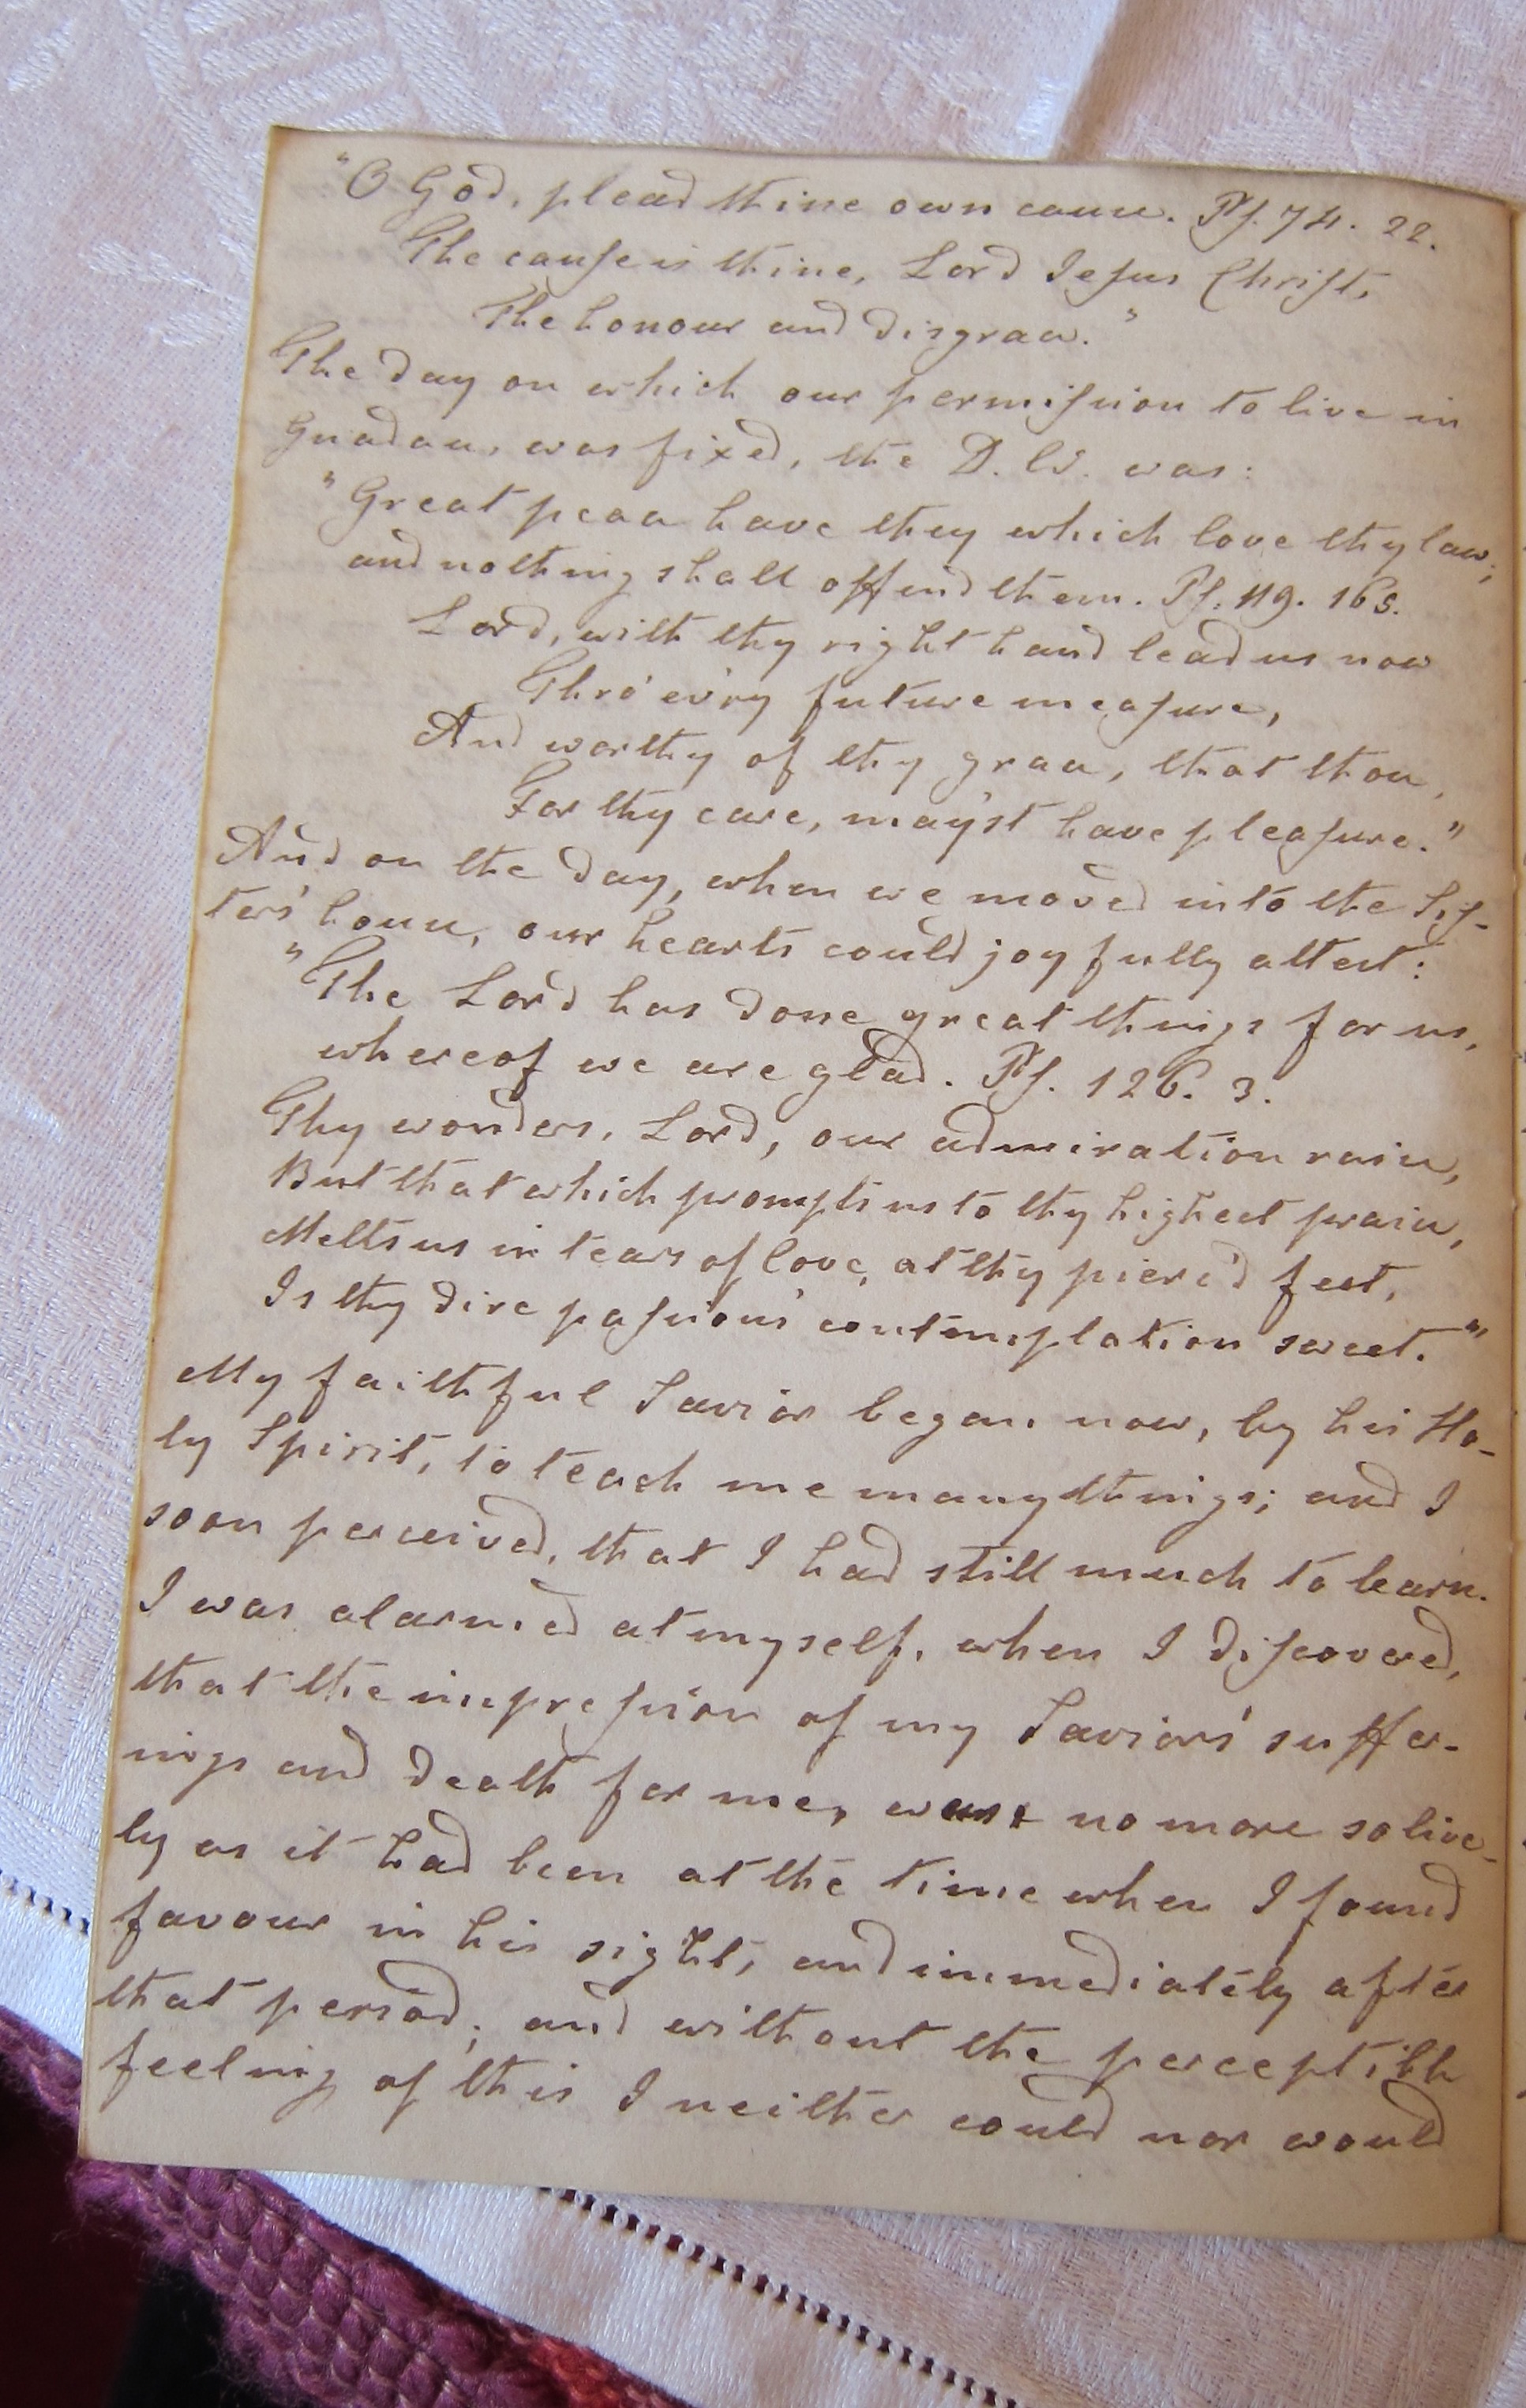 "O God, plead thine own cause. Ps. 74. 22.
The cause is thine, Lord Jesus Christ,
The honour and disgrace."
The day on which our permission to live in
Gnadau, was fixed, the D. W. was:
"Great peace have they which love thy law;
and nothing shall offend them. Ps. 119. 165.
Lord, with thy right hand lead us now
Thro' ev'ry future measure,
And worthy of thy grace, that thou,
For thy care, may'st have pleasure."
And on the day, when we moved into the Sis-
ters' house, our hearts could joyfully attest:
"The Lord has done great things for us,
whereof we are glad. Ps. 126. 3.
Thy wonders, Lord, our admiration raise,
But that which prompts us to thy highest praise,
Melts us in tears of love, at thy pierc'd feet,
Is thy dire passions' contemplation sweet."
My faithful Savior began now, by his Ho-
ly Spirit, to teach me many things; and I
soon perceived, that I had still much to learn.
I was alarmed at myself, when I discovered,
that the impression of my Saviors' suffer-
ings and death for me, was no more so live-
ly as it had been at the time when I found
favour in his sight, and immediately after
that period; and without the perceptible
feeling of this I neither could nor would